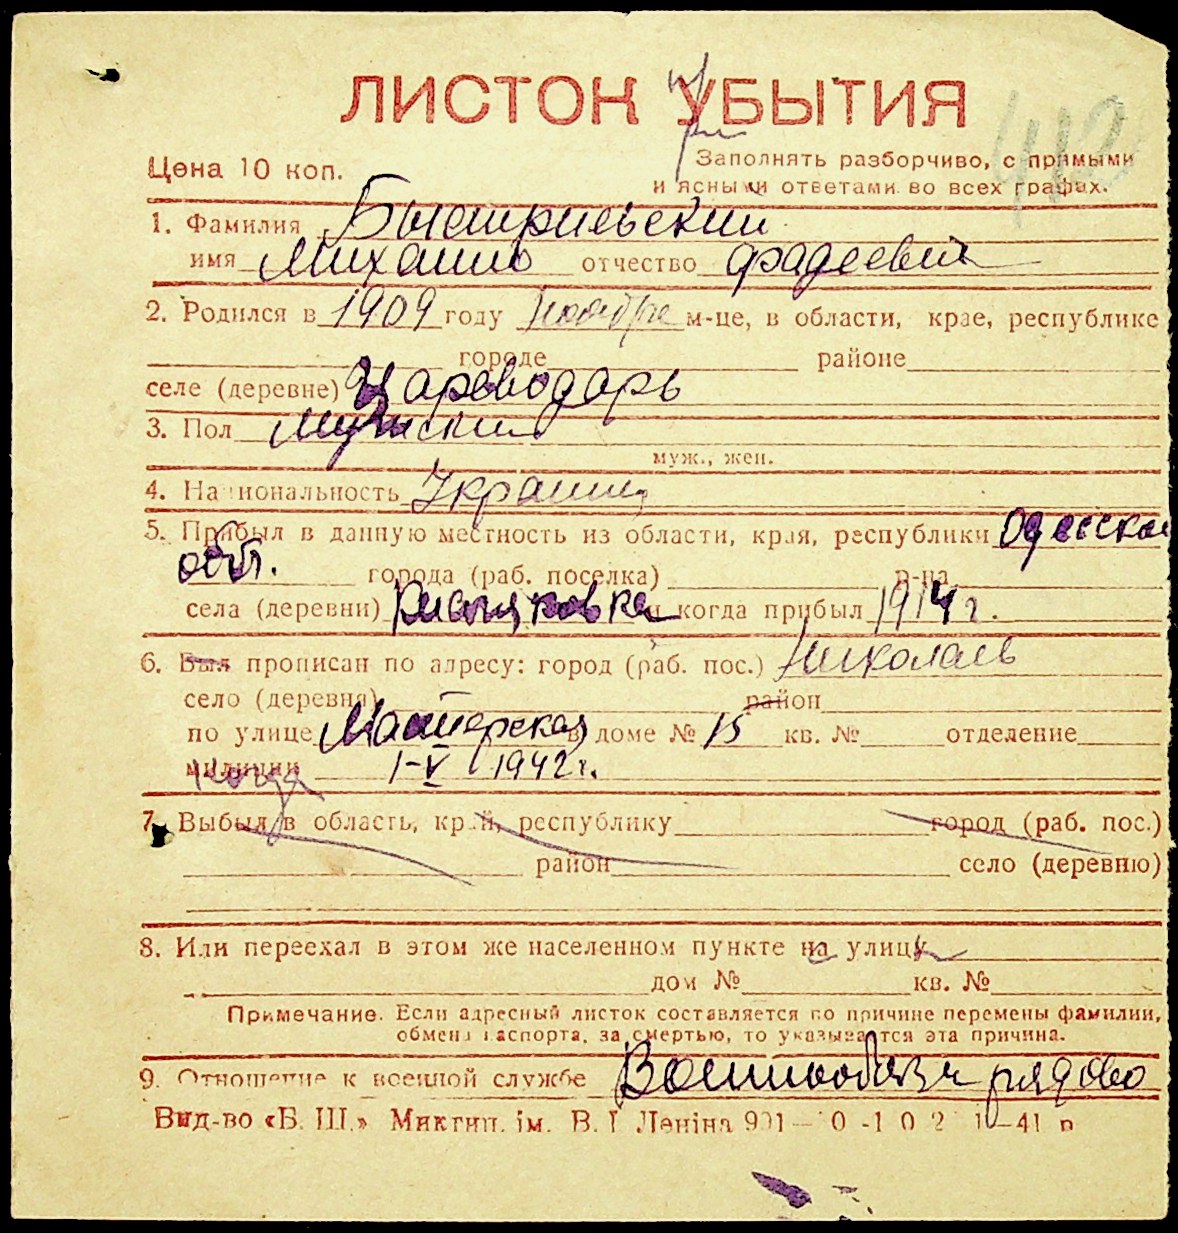 ЛИСТОК УБЫТИЯ
при
412
Цена 10 коп.
Заполнять разборчиво, с прямыми
и ясными ответами во всех графах.
1. Фамилия Быстрильский
имя Михаил отчество Фадеевич
2. Родился в 1909 году ноябре м-це, в области, крае, республике
городе районе
селе (деревне) Цареводарь
3. Пол мужский
муж., жен.
4. Национальность Украинец
5. Прибыл в данную местность из области, края, республики Одесской
обл. города (раб. поселка) р-на
села (деревни) и когда прибыл 1914 г.
6. Был прописан по адресу: город (раб. пос.) Николаев
село (деревня) район
по улице Мастерская в доме № 15 кв. № отделение
милиции когда 1-V 1942 г.
7. Выбыл в область, край, республику город (раб. пос.)
район село (деревню)
8. Или переехал в этом же населенном пункте на улицу
дом № кв. №
Примечание. Если адресный листок составляется по причине перемены фамилии,
обмена паспорта, за смертью, то указывается эта причина.
9. Отношение к военной службе Военнообяз. рядово
Вид-во «Б. Ш.» Миктип. ім. В. І Леніна